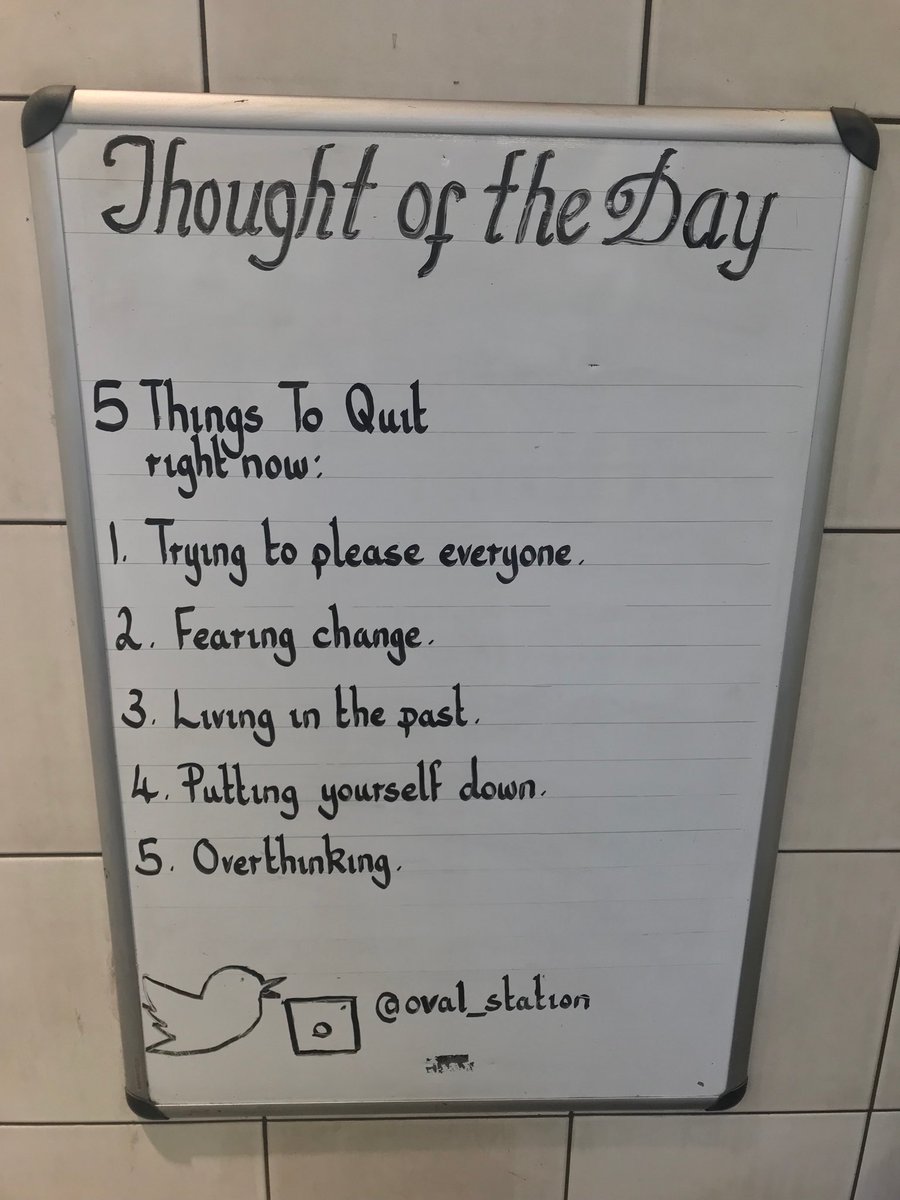 Thought of the Day
5 Things To Quit
right now:
1. Trying to please everyone.
2. Fearing change.
3. Living in the past.
4. Putting yourself down.
5. Overthinking.
@oval_station